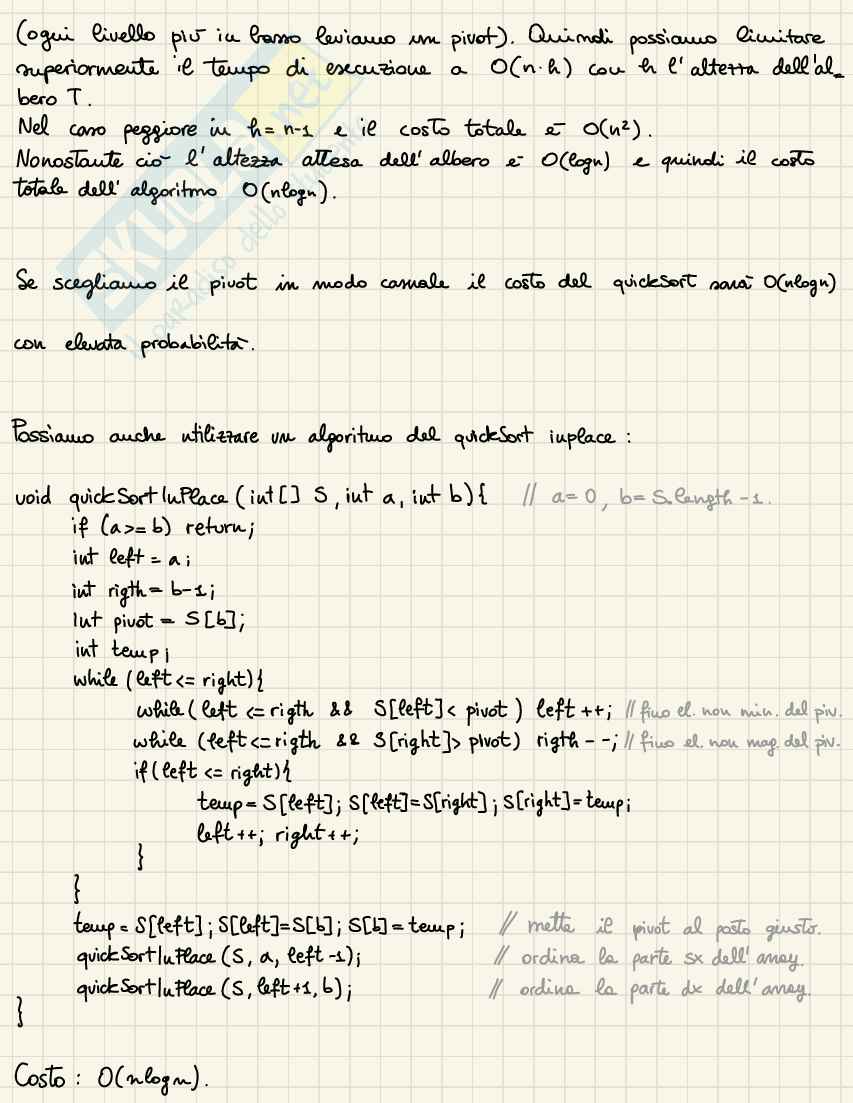 (ogni livello più in basso leviamo un pivot). Quindi possiamo limitare
superiormente il tempo di esecuzione a O(n·h) con h l'altezza dell'al_
bero T.
Nel caso peggiore in h= n-1 e il costo totale è O(n²).
Nonostante ciò l'altezza attesa dell'albero è O(logn) e quindi il costo
totale dell'algoritmo O(nlogn).
Se scegliamo il pivot in modo casuale il costo del quickSort sarà O(nlogn)
con elevata probabilità.
Possiamo anche utilizzare un algoritmo del quickSort inplace :
void quickSortInPlace (int[] S, int a, int b){ // a= 0, b= S.length -1.
if (a>= b) return;
int left = a;
int rigth = b-1;
int pivot = S[b];
int temp;
while (left <= right){
while( left <= rigth && S[left]< pivot ) left ++; // fino el. non min. del piv.
while (left<= rigth && S[right]> pivot) rigth --; // fino el. non mag. del piv.
if(left <= right){
temp= S[left]; S[left]=S[right]; S[right]=temp;
left++; right++;
}
}
temp= S[left]; S[left]=S[b]; S[b]=temp; // mette il pivot al posto giusto.
quickSortInPlace (S, a, left-1); // ordina la parte sx dell'array.
quickSortInPlace (S, left+1, b); // ordina la parte dx dell'array.
}
Costo : O(nlogn).
SKUOLA.net
il paradiso dello studente